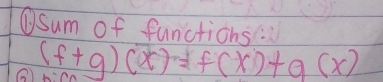 ① Sum of functions:
(f+g)(x) = f(x)+g(x)